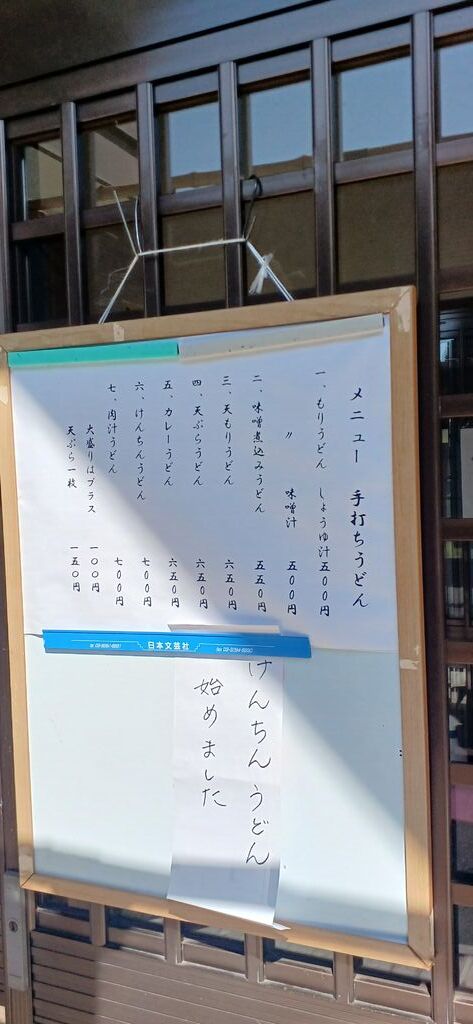 メニュー 手打ちうどん
一、もりうどん しょうゆ汁 五〇〇円
〃 味噌汁 五〇〇円
二、味噌煮込みうどん 五五〇円
三、天もりうどん 六五〇円
四、天ぷらうどん 六五〇円
五、カレーうどん 六五〇円
六、けんちんうどん 七〇〇円
七、肉汁うどん 七〇〇円
大盛りはプラス 一〇〇円
天ぷら一枚 一五〇円
日本文芸社
けんちんうどん
始めました